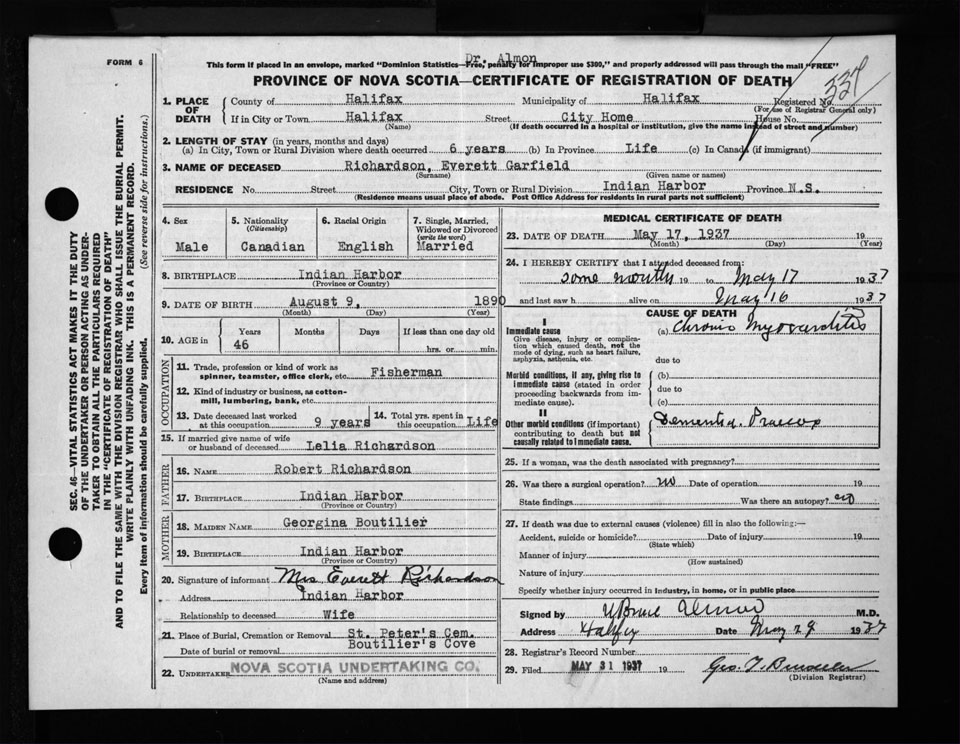 FORM 6
Dr. Almon
This form if placed in an envelope, marked "Dominion Statistics—Free, penalty for improper use $300," and properly addressed will pass through the mail "FREE"
PROVINCE OF NOVA SCOTIA—CERTIFICATE OF REGISTRATION OF DEATH
334
1. PLACE OF DEATH County of Halifax Municipality of Halifax Registered No.
(For use of Registrar General only)
If in City or Town Halifax Street City Home House No.
(Name) (If death occurred in a hospital or institution, give the name instead of street and number)
2. LENGTH OF STAY (in years, months and days)
(a) In City, Town or Rural Division where death occurred 6 years (b) In Province Life (c) In Canada (if immigrant)
3. NAME OF DECEASED Richardson, Everett Garfield
(Surname) (Given name or names)
RESIDENCE No. Street City, Town or Rural Division Indian Harbor Province N.S.
(Residence means usual place of abode. Post Office Address for residents in rural parts not sufficient)
4. Sex Male
5. Nationality (Citizenship) Canadian
6. Racial Origin English
7. Single, Married, Widowed or Divorced (write the word) Married
8. BIRTHPLACE Indian Harbor
(Province or Country)
9. DATE OF BIRTH August 9, 1890
(Month) (Day) (Year)
10. AGE in Years Months Days If less than one day old
46 hrs. or min.
OCCUPATION
11. Trade, profession or kind of work as spinner, teamster, office clerk, etc. Fisherman
12. Kind of industry or business, as cotton-mill, lumbering, bank, etc.
13. Date deceased last worked at this occupation 9 years
14. Total yrs. spent in this occupation Life
15. If married give name of wife or husband of deceased Lelia Richardson
FATHER
16. NAME Robert Richardson
17. BIRTHPLACE Indian Harbor
(Province or Country)
MOTHER
18. MAIDEN NAME Georgina Boutilier
19. BIRTHPLACE Indian Harbor
(Province or Country)
20. Signature of informant Mrs Everett Richardson
Address Indian Harbor
Relationship to deceased Wife
21. Place of Burial, Cremation or Removal St. Peter's Cem.
Boutilier's Cove
Date of burial or removal
22. UNDERTAKER NOVA SCOTIA UNDERTAKING CO.
(Name and address)
MEDICAL CERTIFICATE OF DEATH
23. DATE OF DEATH May 17, 1937 19
(Month) (Day) (Year)
24. I HEREBY CERTIFY that I attended deceased from:
some months 19 to May 17 1937
and last saw h alive on May 16 1937
CAUSE OF DEATH
I
Immediate cause (a) Chronic Myocarditis
Give disease, injury or complication which caused death, not the mode of dying, such as heart failure, asphyxia, asthenia, etc.
due to
Morbid conditions, if any, giving rise to immediate cause (stated in order proceeding backwards from immediate cause).
(b)
due to
(c)
II
Other morbid conditions (if important) contributing to death but not causally related to immediate cause.
Dementia Praecox
25. If a woman, was the death associated with pregnancy?
26. Was there a surgical operation? no Date of operation 19
State findings Was there an autopsy? no
27. If death was due to external causes (violence) fill in also the following:—
Accident, suicide or homicide? Date of injury 19
(State which)
Manner of injury
(How sustained)
Nature of injury
Specify whether injury occurred in industry, in home, or in public place
Signed by Almon M.D.
Address Halifax Date May 29 1937
28. Registrar's Record Number
29. Filed MAY 31 1937 19
(Division Registrar)
SEC. 46—VITAL STATISTICS ACT MAKES IT THE DUTY
OF THE UNDERTAKER OR PERSON ACTING AS UNDER-
TAKER TO OBTAIN ALL THE PARTICULARS REQUIRED
IN THE "CERTIFICATE OF REGISTRATION OF DEATH"
AND TO FILE THE SAME WITH THE DIVISION REGISTRAR WHO SHALL ISSUE THE BURIAL PERMIT.
WRITE PLAINLY WITH UNFADING INK. THIS IS A PERMANENT RECORD.
Every item of information should be carefully supplied. (See reverse side for instructions.)